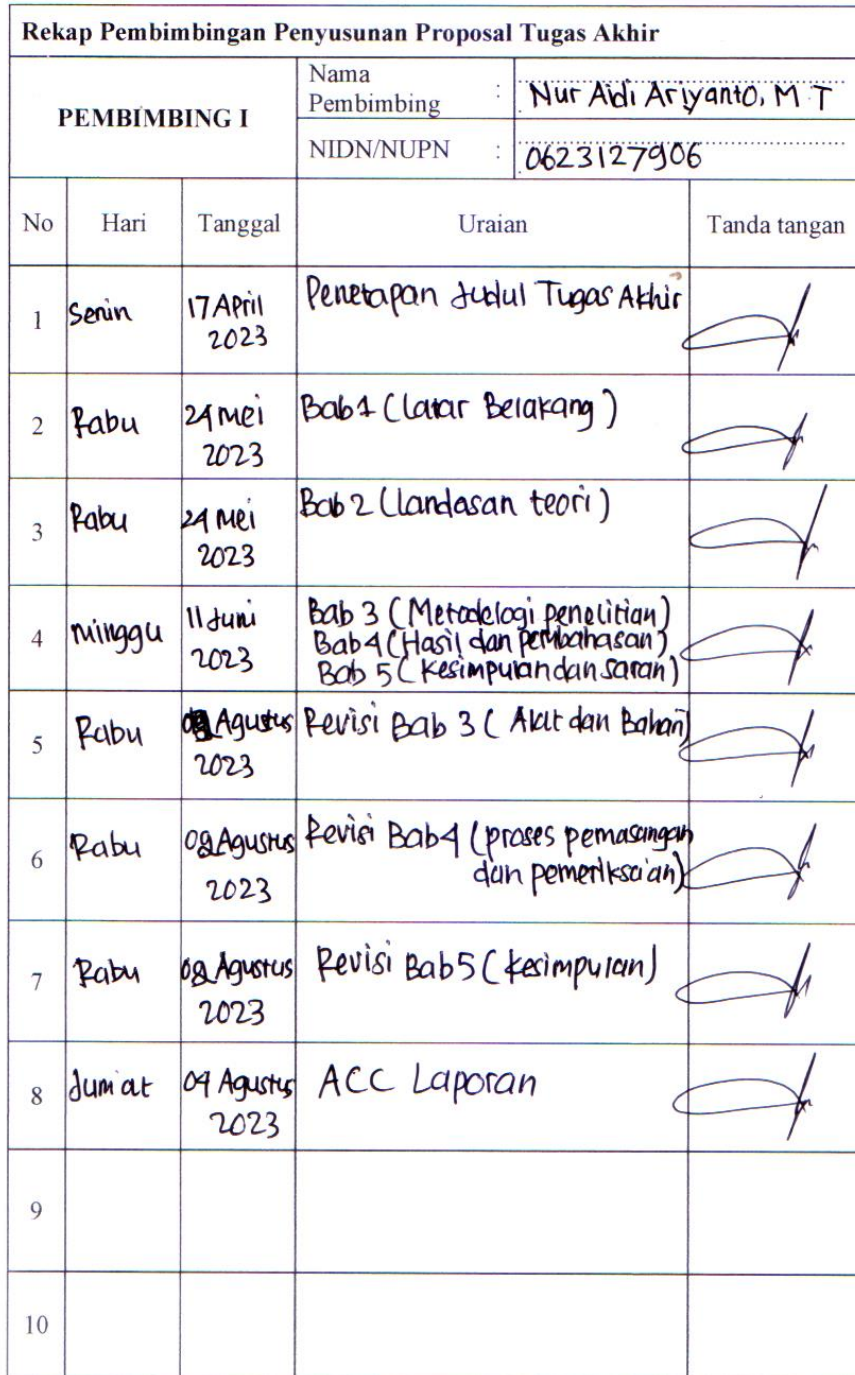 Rekap Pembimbingan Penyusunan Proposal Tugas Akhir
PEMBIMBING I
Nama Pembimbing : Nur Aidi Ariyanto, M T
NIDN/NUPN : 0623127906
No Hari Tanggal Uraian Tanda tangan
1 Senin 17 April 2023 Penetapan Judul Tugas Akhir
2 Rabu 24 Mei 2023 Bab 1 (Latar Belakang)
3 Rabu 24 Mei 2023 Bab 2 (Landasan teori)
4 Minggu 11 Juni 2023 Bab 3 (Metodelogi penelitian)
Bab 4 (Hasil dan pembahasan)
Bab 5 (Kesimpulan dan saran)
5 Rabu Agustus 2023 Revisi Bab 3 (Alat dan Bahan)
6 Rabu Agustus 2023 Revisi Bab 4 (proses pemasangan
dan pemeriksaan)
7 Rabu Agustus 2023 Revisi Bab 5 (Kesimpulan)
8 Jum'at 04 Agustus 2023 ACC Laporan
9
10